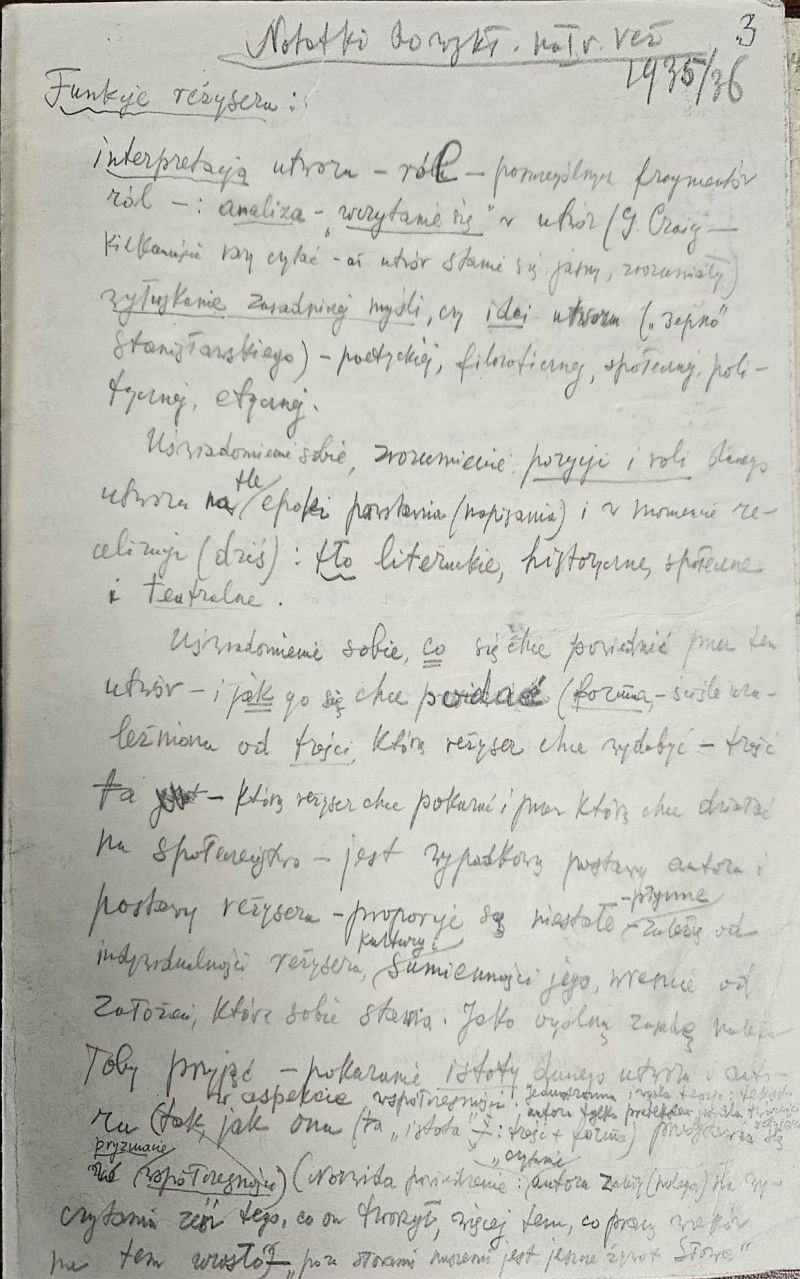 Notatki do wykł. 3
1935/36
Funkcje reżysera:
interpretacja utworu – ról – poszczególnych fragmentów
ról –: analiza – „wczytanie się" w utwór (G. Craig –
kilkanaście razy czytać – aż utwór stanie się jasny, zrozumiały)
wyłuskanie zasadniczej myśli, czy idei utworu („зерно"
Stanisławskiego) – poetyckiej, filozoficznej, społecznej, poli-
tycznej, etycznej.
Uświadomienie sobie, zrozumienie pozycji i roli danego
utworu na tle epoki powstania (napisania) i w momencie re-
alizacji (dziś): tło literackie, historyczne, społeczne
i teatralne.
Uświadomienie sobie, co się chce powiedzieć przez ten
utwór – i jak go się chce podać (forma – ściśle uza-
leżniona od treści, którą reżyser chce wydobyć – treść
ta – którą reżyser chce pokazać i przez którą chce działać
na społeczeństwo – jest wypadkową postawy autora i
postawy reżysera – proporcje są niestałe – płynne – zależą od
indywidualności reżysera, kultury i sumienności jego, wreszcie od
założeń, które sobie stawia. Jako ogólną zasadę należa-
łoby przyjąć – pokazanie istoty danego utworu i auto-
w aspekcie współczesności.
autora tylko pretekstem
ra (tak, jak ona (ta „istota" –: treść + forma)
pryzmacie
współczesności) (Norwida powiedzenie: „czytanie autora zależy (polega) na wy-
czytaniu zeń tego, co on tworzył, więcej tem, co pracą wieków
na tem wrosło" – „poza słowami naszemi jest jeszcze żywot Słowa"